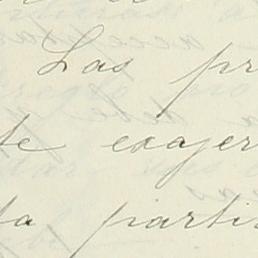 Las pr
te exajer
ta parti